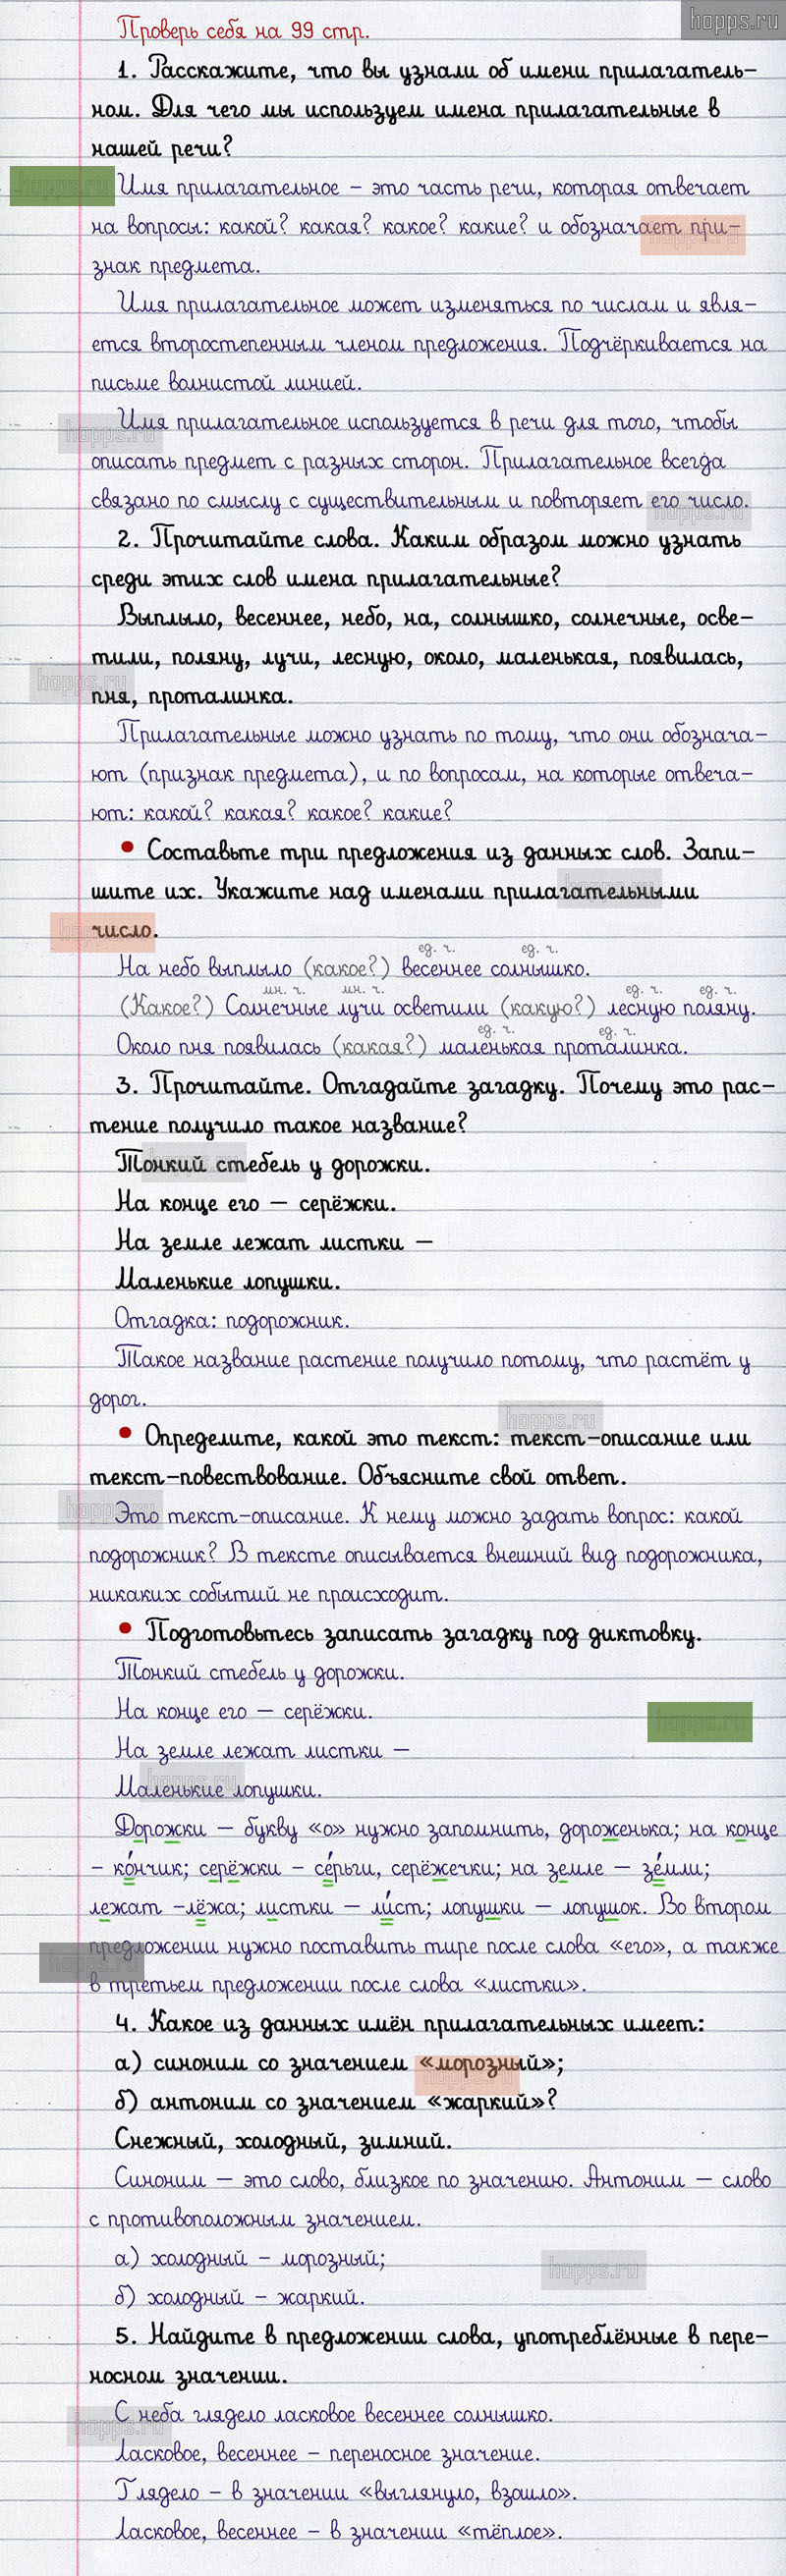 hopps.ru
Проверь себя на 99 стр.
1. Расскажите, что вы узнали об имени прилагатель-
ном. Для чего мы используем имена прилагательные в
нашей речи?
Имя прилагательное – это часть речи, которая отвечает
на вопросы: какой? какая? какое? какие? и обозначает при-
знак предмета.
Имя прилагательное может изменяться по числам и явля-
ется второстепенным членом предложения. Подчёркивается на
письме волнистой линией.
Имя прилагательное используется в речи для того, чтобы
описать предмет с разных сторон. Прилагательное всегда
связано по смыслу с существительным и повторяет его число.
2. Прочитайте слова. Каким образом можно узнать
среди этих слов имена прилагательные?
Выплыло, весеннее, небо, на, солнышко, солнечные, осве-
тили, поляну, лучи, лесную, около, маленькая, появилась,
пня, проталинка.
Прилагательные можно узнать по тому, что они обознача-
ют (признак предмета), и по вопросам, на которые отвеча-
ют: какой? какая? какое? какие?
• Составьте три предложения из данных слов. Запи-
шите их. Укажите над именами прилагательными
число.
ед. ч. ед. ч.
На небо выплыло (какое?) весеннее солнышко.
мн. ч. мн. ч. ед. ч. ед. ч.
(Какое?) Солнечные лучи осветили (какую?) лесную поляну.
ед. ч. ед. ч.
Около пня появилась (какая?) маленькая проталинка.
3. Прочитайте. Отгадайте загадку. Почему это рас-
тение получило такое название?
Тонкий стебель у дорожки.
На конце его – серёжки.
На земле лежат листки –
Маленькие лопушки.
Отгадка: подорожник.
Такое название растение получило потому, что растёт у
дорог.
• Определите, какой это текст: текст-описание или
текст-повествование. Объясните свой ответ.
Это текст-описание. К нему можно задать вопрос: какой
подорожник? В тексте описывается внешний вид подорожника,
никаких событий не происходит.
• Подготовьтесь записать загадку под диктовку.
Тонкий стебель у дорожки.
На конце его – серёжки.
На земле лежат листки –
Маленькие лопушки.
Дорожки – букву «о» нужно запомнить, дороженька; на конце
– ко́нчик; серёжки – се́рьги, серёжечки; на земле – зе́мли;
лежат –лёжа; листки – ли́ст; лопушки – лопушок. Во втором
предложении нужно поставить тире после слова «его», а также
в третьем предложении после слова «листки».
4. Какое из данных имён прилагательных имеет:
а) синоним со значением «морозный»;
б) антоним со значением «жаркий»?
Снежный, холодный, зимний.
Синоним – это слово, близкое по значению. Антоним – слово
с противоположным значением.
а) холодный – морозный;
б) холодный – жаркий.
5. Найдите в предложении слова, употреблённые в пере-
носном значении.
С неба глядело ласковое весеннее солнышко.
Ласковое, весеннее – переносное значение.
Глядело – в значении «выглянуло, взошло».
Ласковое, весеннее – в значении «тёплое».